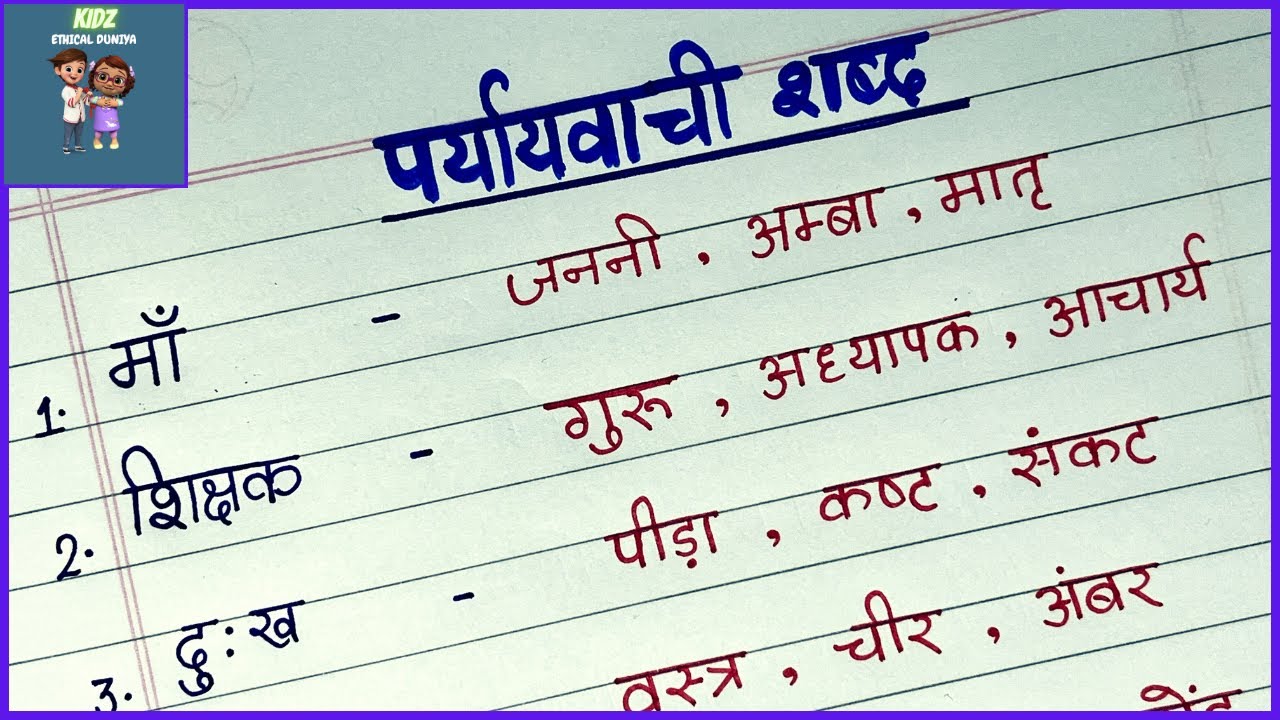 KIDZ
ETHICAL DUNIYA
पर्यायवाची शब्द
1. माँ - जननी , अम्बा , मातृ
2. शिक्षक - गुरू , अध्यापक , आचार्य
3. दु:ख - पीड़ा , कष्ट , संकट
वस्त्र , चीर , अंबर